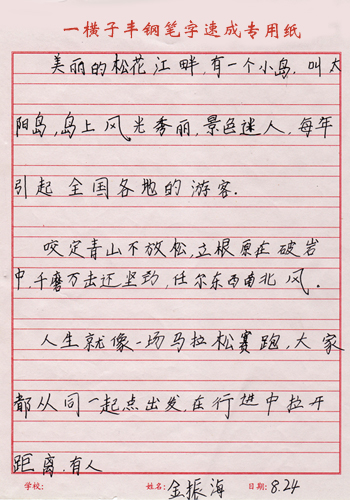 一横子丰钢笔字速成专用纸
美丽的松花江畔,有一个小岛,叫太
阳岛,岛上风光秀丽,景色迷人,每年
引起全国各地的游客.
咬定青山不放松,立根原在破岩
中,千磨万击还坚劲,任尔东西南北风.
人生就像一场马拉松赛跑,大家
都从同一起点出发,在行进中拉开
距离,有人
学校: 姓名: 金振海 日期: 8.24